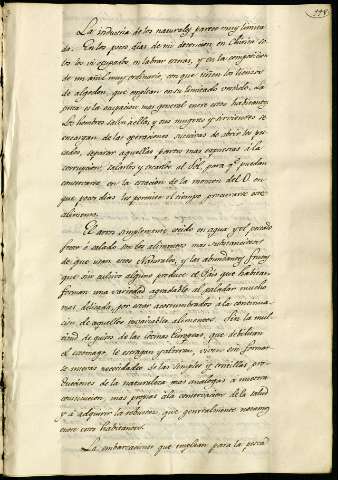 La industria de los naturales parece muy limita-
da. En los pocos dias de mi detencion en so-
los vi ocupados en labrar y en la composicion
de un añil muy ordinario, con que tiñen los lienzos
de algodon, que emplean en su limitado vestido. La
pesca es la ocupacion mas general entre estos habitantes.
Los hombres salen á ella, y sus mugeres y sirvientes se
encargan de las operaciones succesivas de abrir los pes-
cados, separar aquellas partes mas expuestas á la
corrupcion, salarlos y secarlos al Sol, para q.e puedan
conservarse en la estacion de la monzon del O. en
que pocos dias les permite el tiempo procurarse este
alimento.
El arroz simplemente cocido en agua y el pescado
fresco ó salado son los alimentos mas substanciosos
de que usan estos Naturales, y las abundantes frutas
que sin cultivo alguno produce el Pais que habitan
forman una variedad agradable al paladar mucho
mas delicada, por estar acostumbrados á la continua-
cion de aquellos invariables alimentos. Sin la mul-
titud de guisos de las cocinas Europeas, que debilitan
el estomago, le estragan y alteran, viven sin formar-
se nuevas necesidades de las simples y sencillas pro-
ducciones de la naturaleza mas analogas á nuestra
constitucion, mas propias á la conservacion de la salud
y á adquirir la robustez, que generalmente notamos
entre estos habitantes.
Las embarcaciones que emplean para la pesca